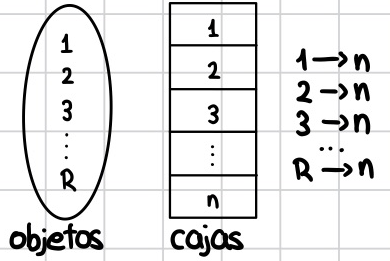 1
2
3
⋮
R
objetos
1
2
3
⋮
n
cajas
1→n
2→n
3→n
...
R→n